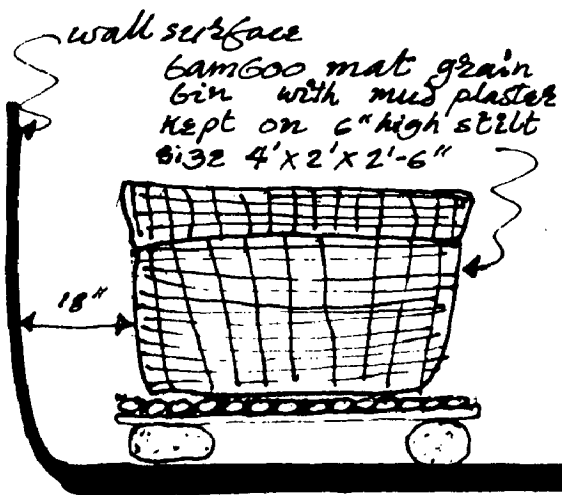 wall surface
bamboo mat grain
bin with mud plaster
kept on 6" high stilt
size 4'x2'x2'-6"
18"